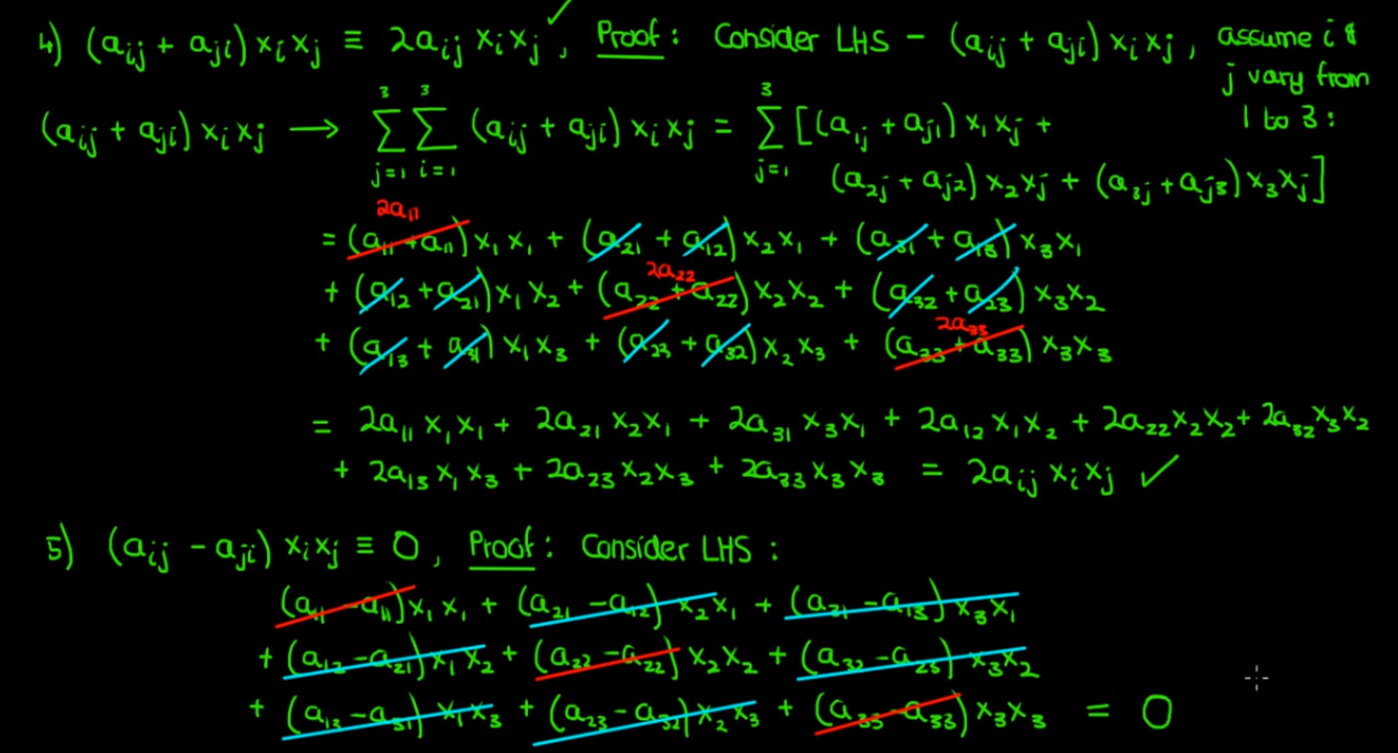 4) (aᵢⱼ + aⱼᵢ) xᵢxⱼ ≡ 2aᵢⱼ xᵢxⱼ ✓, Proof: Consider LHS - (aᵢⱼ + aⱼᵢ) xᵢxⱼ, assume i &
j vary from
1 to 3:
(aᵢⱼ + aⱼᵢ) xᵢxⱼ → ∑³ⱼ₌₁ ∑³ᵢ₌₁ (aᵢⱼ + aⱼᵢ) xᵢxⱼ = ∑³ⱼ₌₁ [(a₁ⱼ + aⱼ₁) x₁xⱼ +
(a₂ⱼ + aⱼ₂) x₂xⱼ + (a₃ⱼ + aⱼ₃) x₃xⱼ]
2a₁₁
= (a₁₁ + a₁₁) x₁x₁ + (a₂₁ + a₁₂) x₂x₁ + (a₃₁ + a₁₃) x₃x₁
2a₂₂
+ (a₁₂ + a₂₁) x₁x₂ + (a₂₂ + a₂₂) x₂x₂ + (a₃₂ + a₂₃) x₃x₂
2a₃₃
+ (a₁₃ + a₃₁) x₁x₃ + (a₂₃ + a₃₂) x₂x₃ + (a₃₃ + a₃₃) x₃x₃
= 2a₁₁ x₁x₁ + 2a₂₁ x₂x₁ + 2a₃₁ x₃x₁ + 2a₁₂ x₁x₂ + 2a₂₂ x₂x₂ + 2a₃₂ x₃x₂
+ 2a₁₃ x₁x₃ + 2a₂₃ x₂x₃ + 2a₃₃ x₃x₃ = 2aᵢⱼ xᵢxⱼ ✓
5) (aᵢⱼ - aⱼᵢ) xᵢxⱼ ≡ 0, Proof: Consider LHS:
(a₁₁ - a₁₁) x₁x₁ + (a₂₁ - a₁₂) x₂x₁ + (a₃₁ - a₁₃) x₃x₁
+ (a₁₂ - a₂₁) x₁x₂ + (a₂₂ - a₂₂) x₂x₂ + (a₃₂ - a₂₃) x₃x₂
+ (a₁₃ - a₃₁) x₁x₃ + (a₂₃ - a₃₂) x₂x₃ + (a₃₃ - a₃₃) x₃x₃ = 0